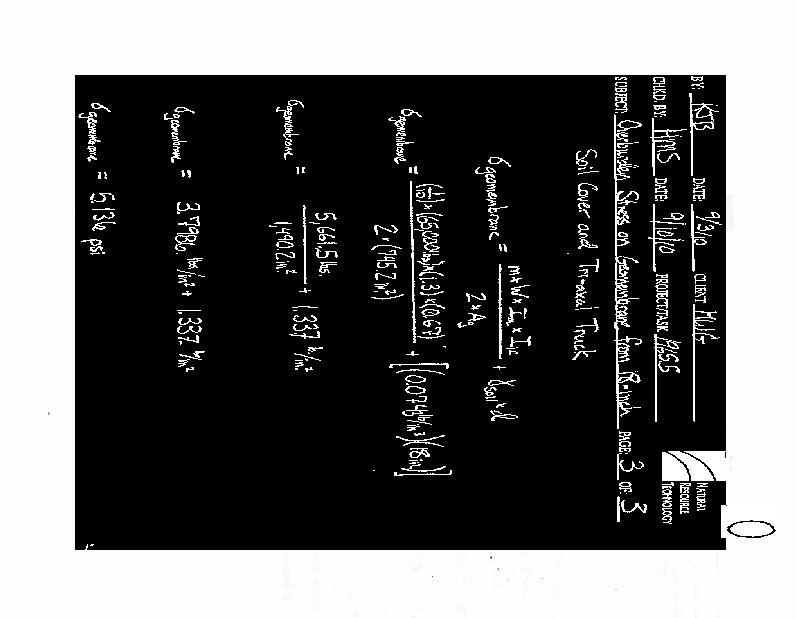 BY: KJB DATE: 9/3/10 CLIENT MWG
CHKD. BY: HMS DATE: 9/10/10 PROJECT/TASK 1965.5
SUBJECT: Overburden Stress on Geomembrane from 18-inch PAGE: 3 OF: 3
Soil Cover and Tri-axel Truck
NATURAL
RESOURCE
TECHNOLOGY
σgeomembrane = m * W * I * I / 2 * A + γsoil * d
σgeomembrane = (1/10) * (65,000 lbs) * (1.3) * (0.67) / 2 * (745.2 in²) + [(0.0743 lb/in³)(18 in)]
σgeomembrane = 5,661.5 lbs. / 1,490.2 in² + 1.337 lb/in²
σgeomembrane = 3.7986 lbs/in² + 1.337 lb/in²
σgeomembrane = 5.136 psi